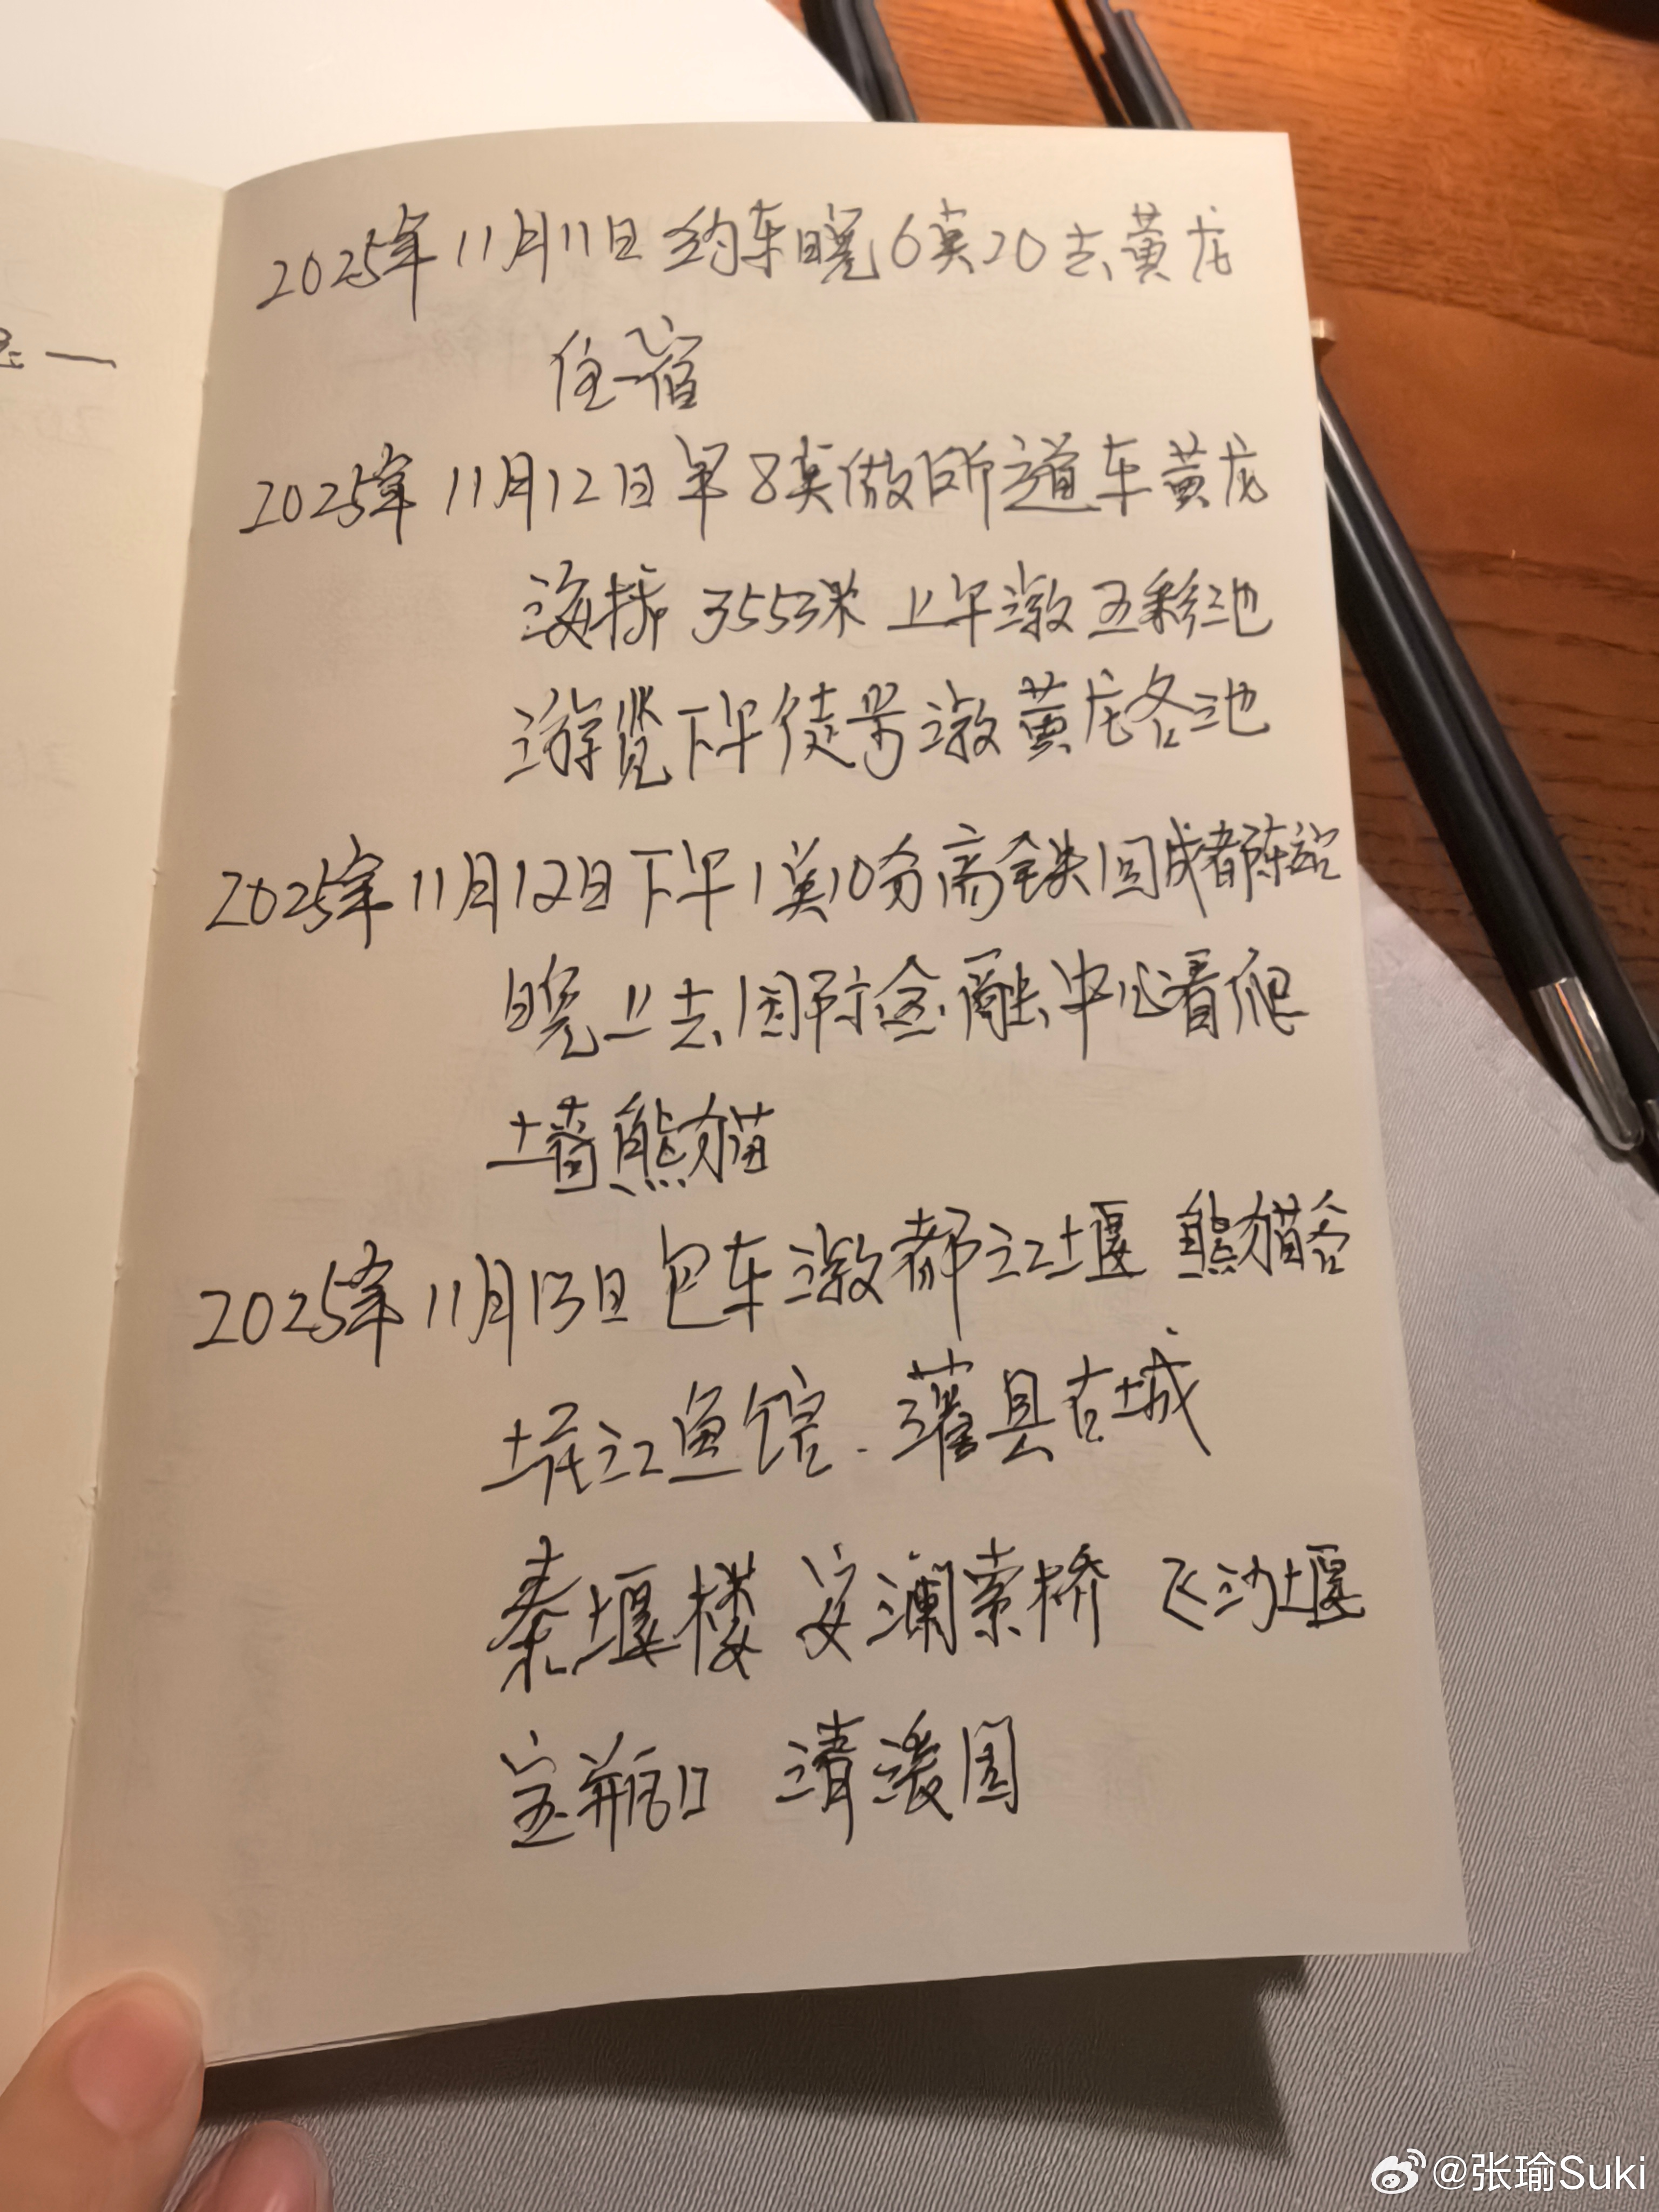 2025年11月11日约车晚6点20去黄龙
住宿
2025年11月12日早8点做索道车黄龙
海拔 3553米 上午激五彩池
游览下午徒步激黄龙各池
2025年11月12日下午1点10分高铁回成都东站
晚上去国际金融中心看爬
墙熊猫
2025年11月13日包车激都江堰 熊猫谷
江鱼馆.灌县古城
秦堰楼 安澜索桥 飞沙堰
宝瓶口 清溪园
@张瑜Suki